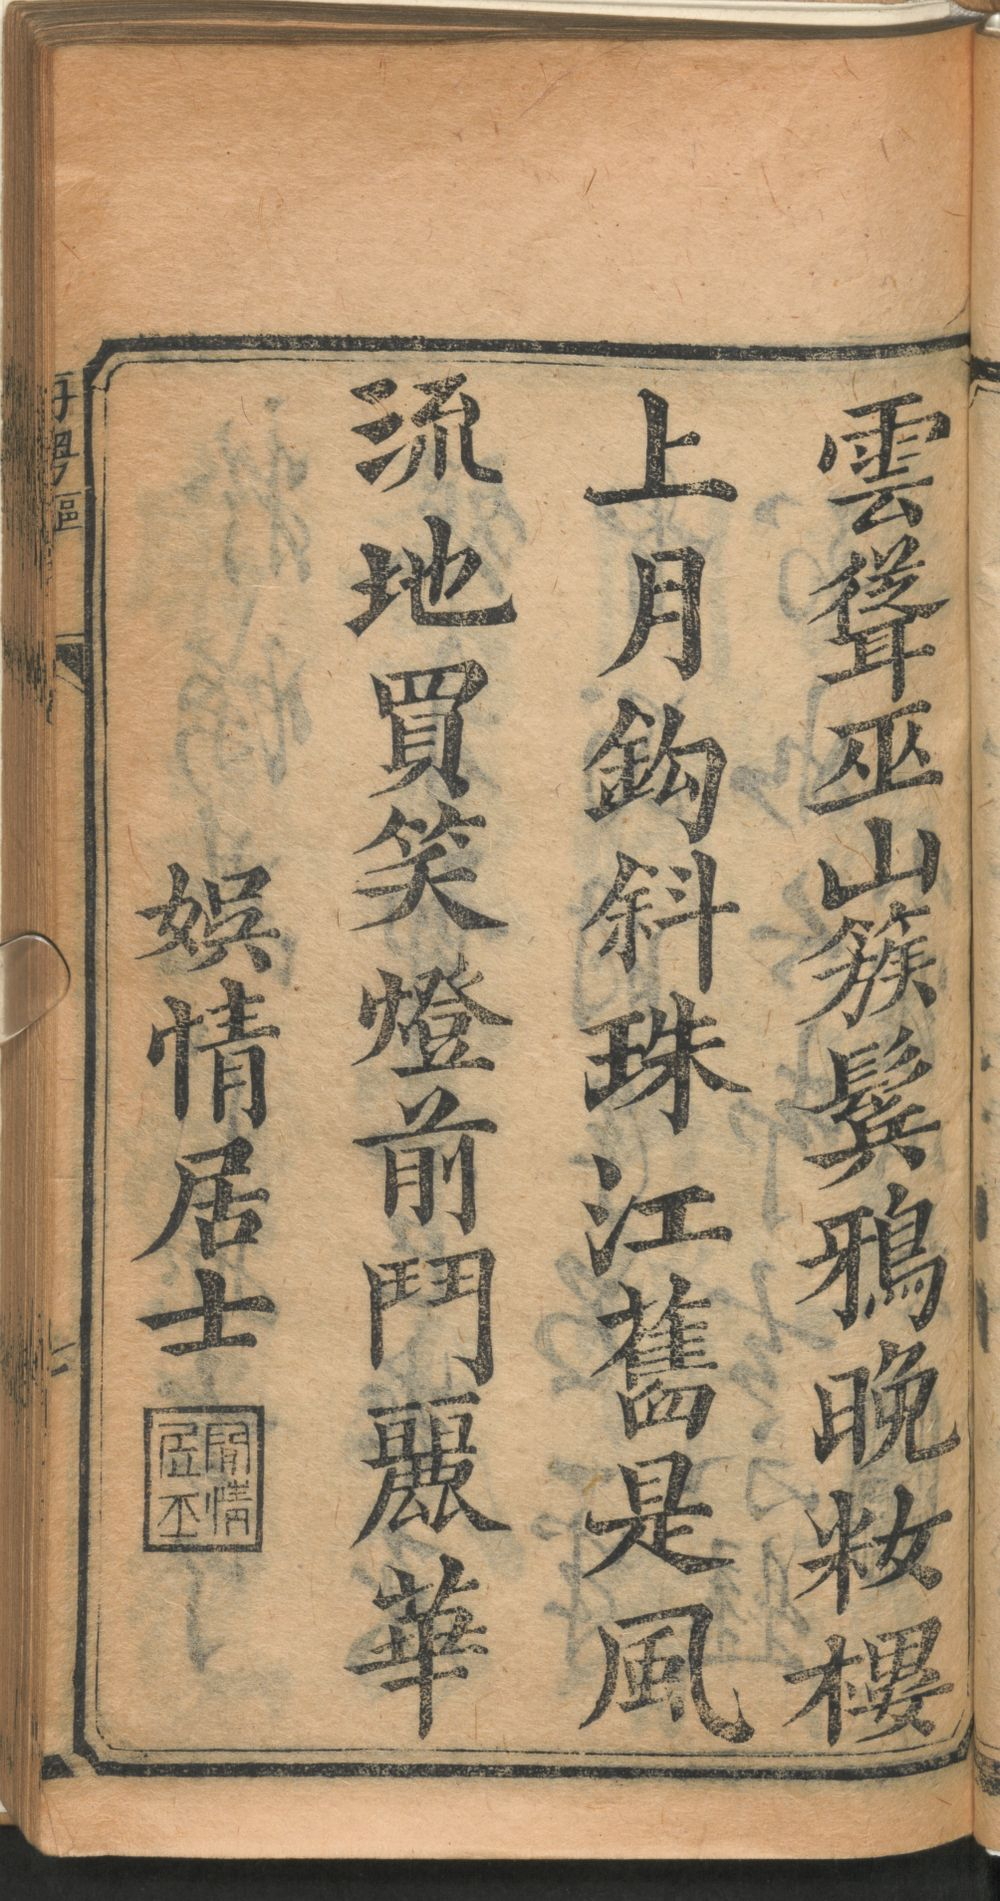 雲聳巫山簇鬓鴉晚妝樓
上月鈎斜珠江舊是風
流地買笑燈前鬥麗華
娛情居士
閒情
居士
粵謳
二